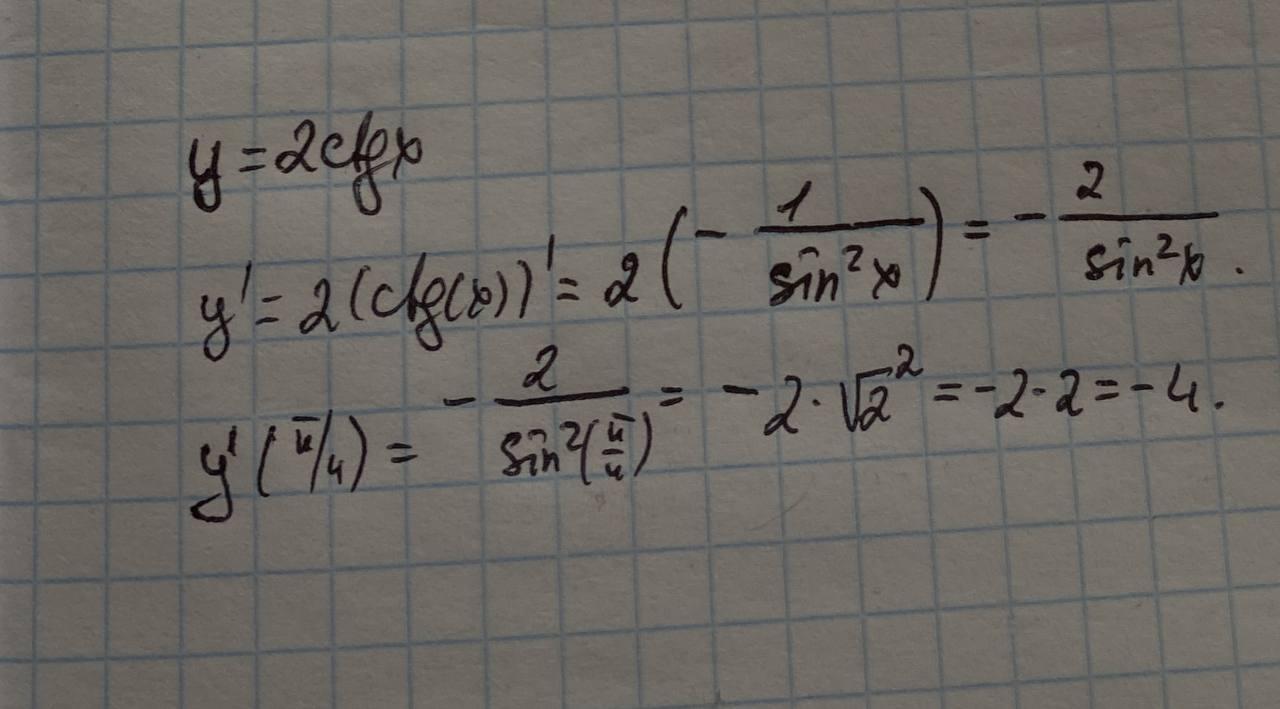 y = 2ctgx
y' = 2(ctg(x))' = 2(-1/sin²x) = -2/sin²x.
y'(π/4) = -2/sin²(π/4) = -2·√2² = -2·2 = -4.